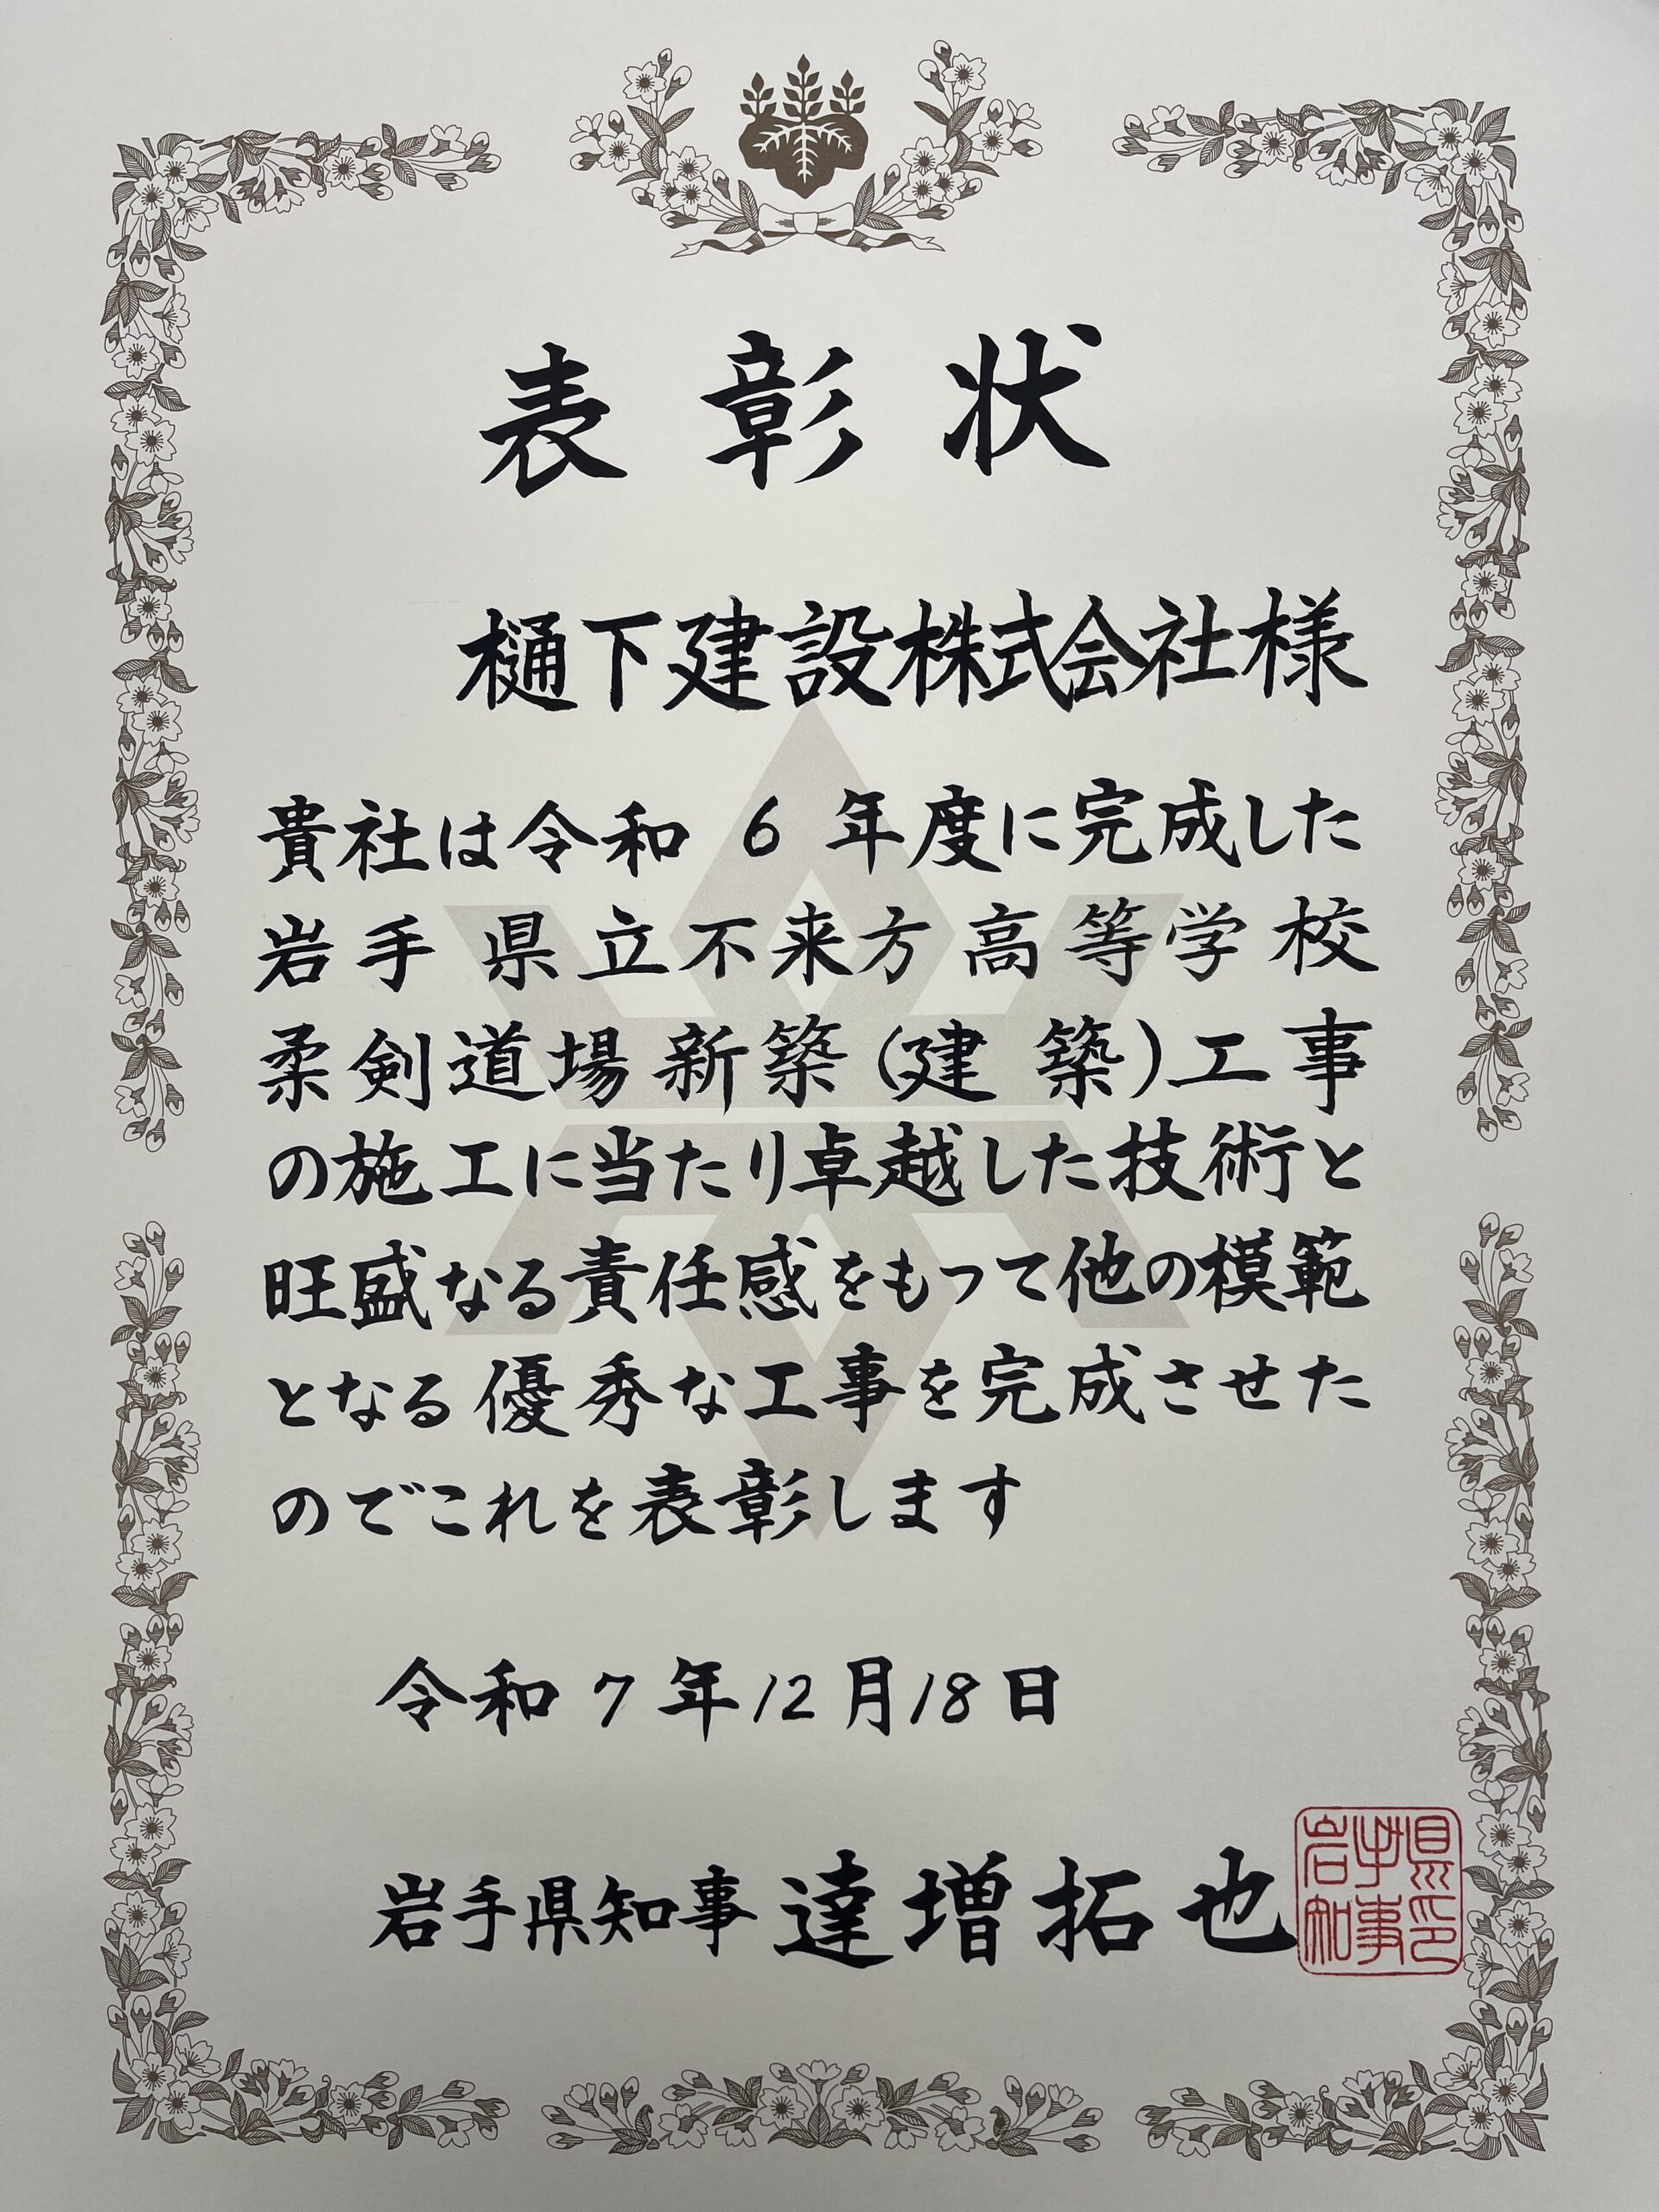 表彰状
樋下建設株式会社様
貴社は令和6年度に完成した
岩手県立不来方高等学校
柔剣道場新築(建築)工事
の施工に当たり卓越した技術と
旺盛なる責任感をもって他の模範
となる優秀な工事を完成させた
のでこれを表彰します
令和7年12月18日
岩手県知事 達増拓也
岩手県
知事印